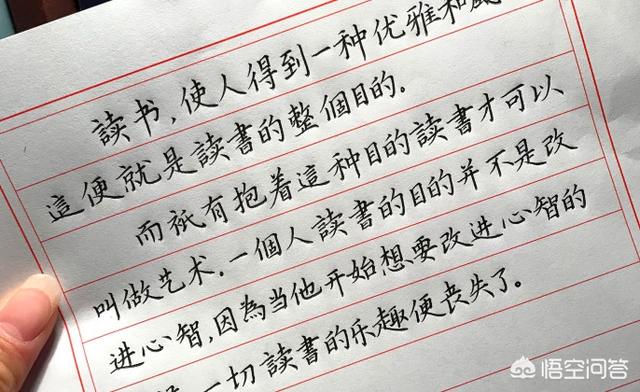 讀书,使人得到一种优雅和
這便就是讀書的整個目的。
而祇有抱着這种目的讀書才可以
叫做艺术。一個人讀書的目的并不是改
进心智,因為当他开始想要改进心智的
一切讀書的乐趣便丧失了。
悟空问答